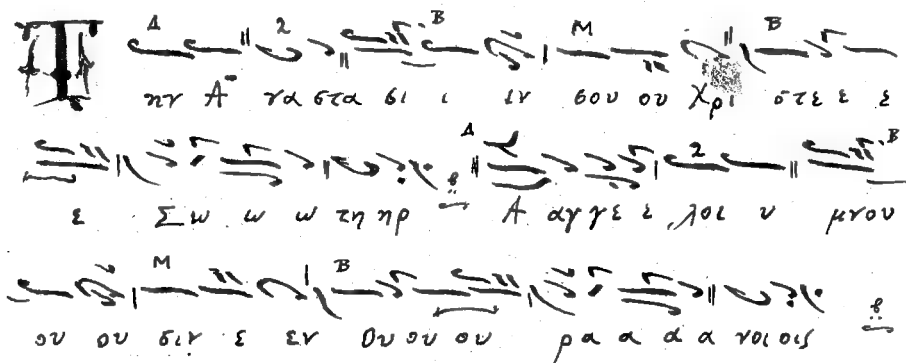 Τ ην Α να στα σι ι ιν σου ου Χρι στε ε ε
ε Σω ω ω τη ηρ Α αγ γε ε λοι υ μνου
ου ου σιν ε εν Ου ου ου ρα α α α νοι οις